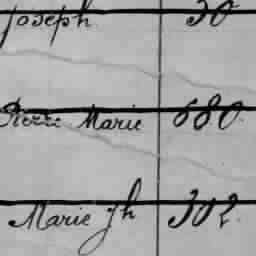 Joseph 30
Pierre Marie 680
Marie Jh 302